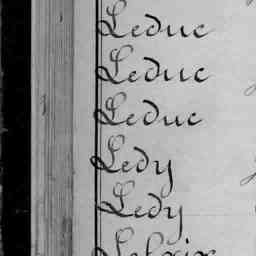 Leduc
Leduc
Leduc
Ledy
Ledy